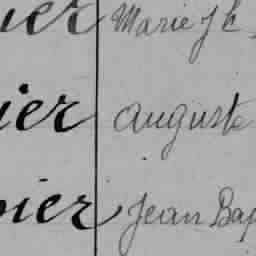 ier Marie J h
ier auguste
ier Jean Bap